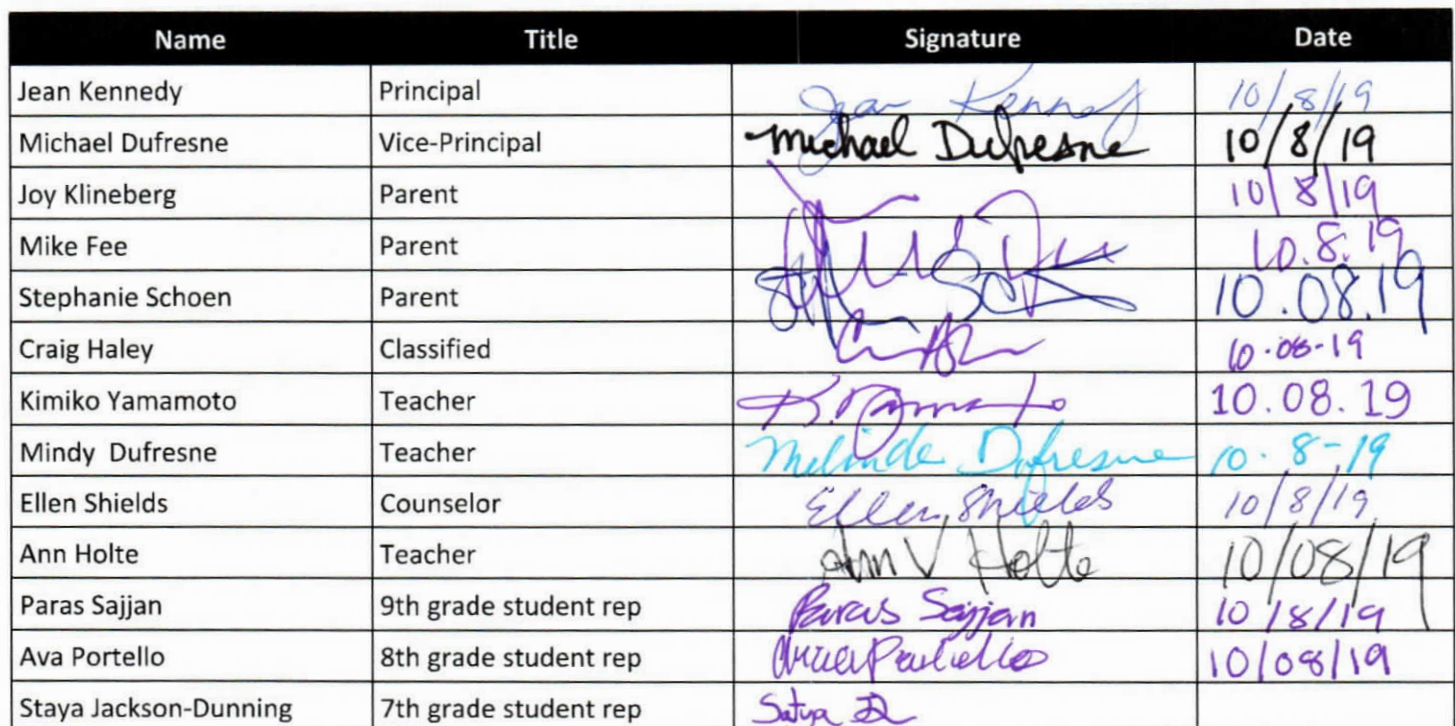 Name Title Signature Date
Jean Kennedy Principal Jean Kennedy 10/8/19
Michael Dufresne Vice-Principal Michael Dufresne 10/8/19
Joy Klineberg Parent 10/8/19
Mike Fee Parent 10.8.19
Stephanie Schoen Parent 10.08.19
Craig Haley Classified 10-08-19
Kimiko Yamamoto Teacher K. Yamamoto 10.08.19
Mindy Dufresne Teacher Melinda Dufresne 10.8-19
Ellen Shields Counselor Ellen Shields 10/8/19
Ann Holte Teacher Ann V Holte 10/08/19
Paras Sajjan 9th grade student rep Paras Sajjan 10/8/19
Ava Portello 8th grade student rep 10/08/19
Staya Jackson-Dunning 7th grade student rep Satya JD